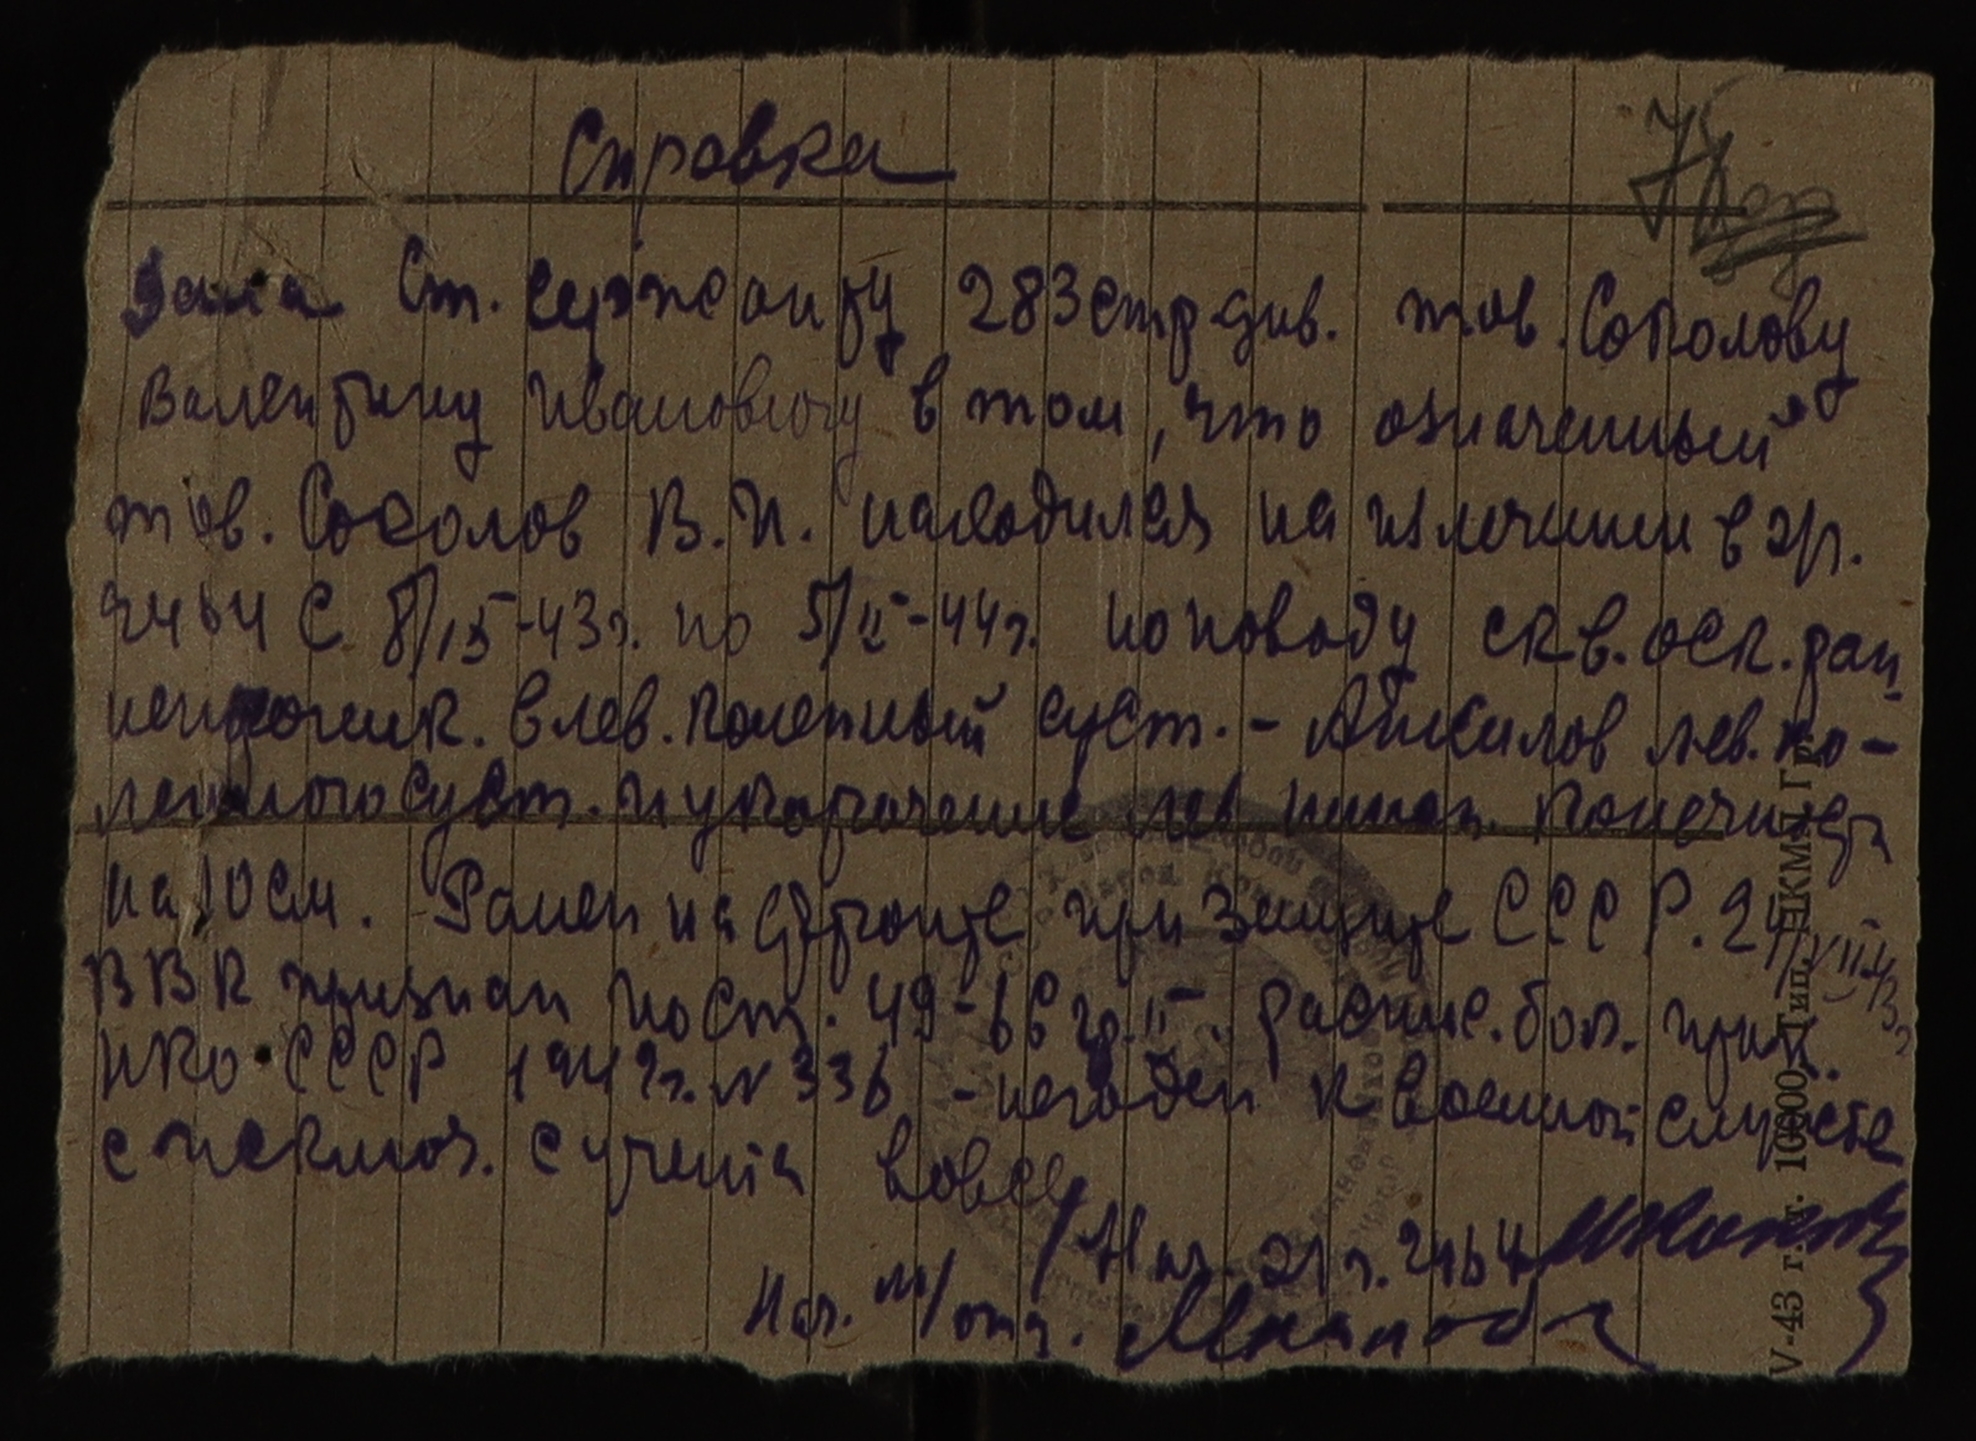 Справка
Дана Ст. сержанту 283 стр див. тов. Соколову
Валентину Ивановичу в том, что означенный
тов. Соколов В.И. находился на излечении в эг.
2464 с 8/IX-43г. по 5/II-44г. по поводу скв. оск. ран
в лев. коленный суст. - Анкилоз лев. ко-
ленного суст. и укорочение лев нижн. конечност
на 10 см. Ранен на фронте при защите СССР. 24/VII-43г
ВВК признан пост. 49-бб гр. II распис. бол. прик.
НКО СССР 1942г. № 336 - негоден к военной службе
с исключ. с учета вовсе
Нач. эг. 2464
Нач. м/отд.
V-43 г. т. 10000 Тип. ЦЕКМЦ Гр